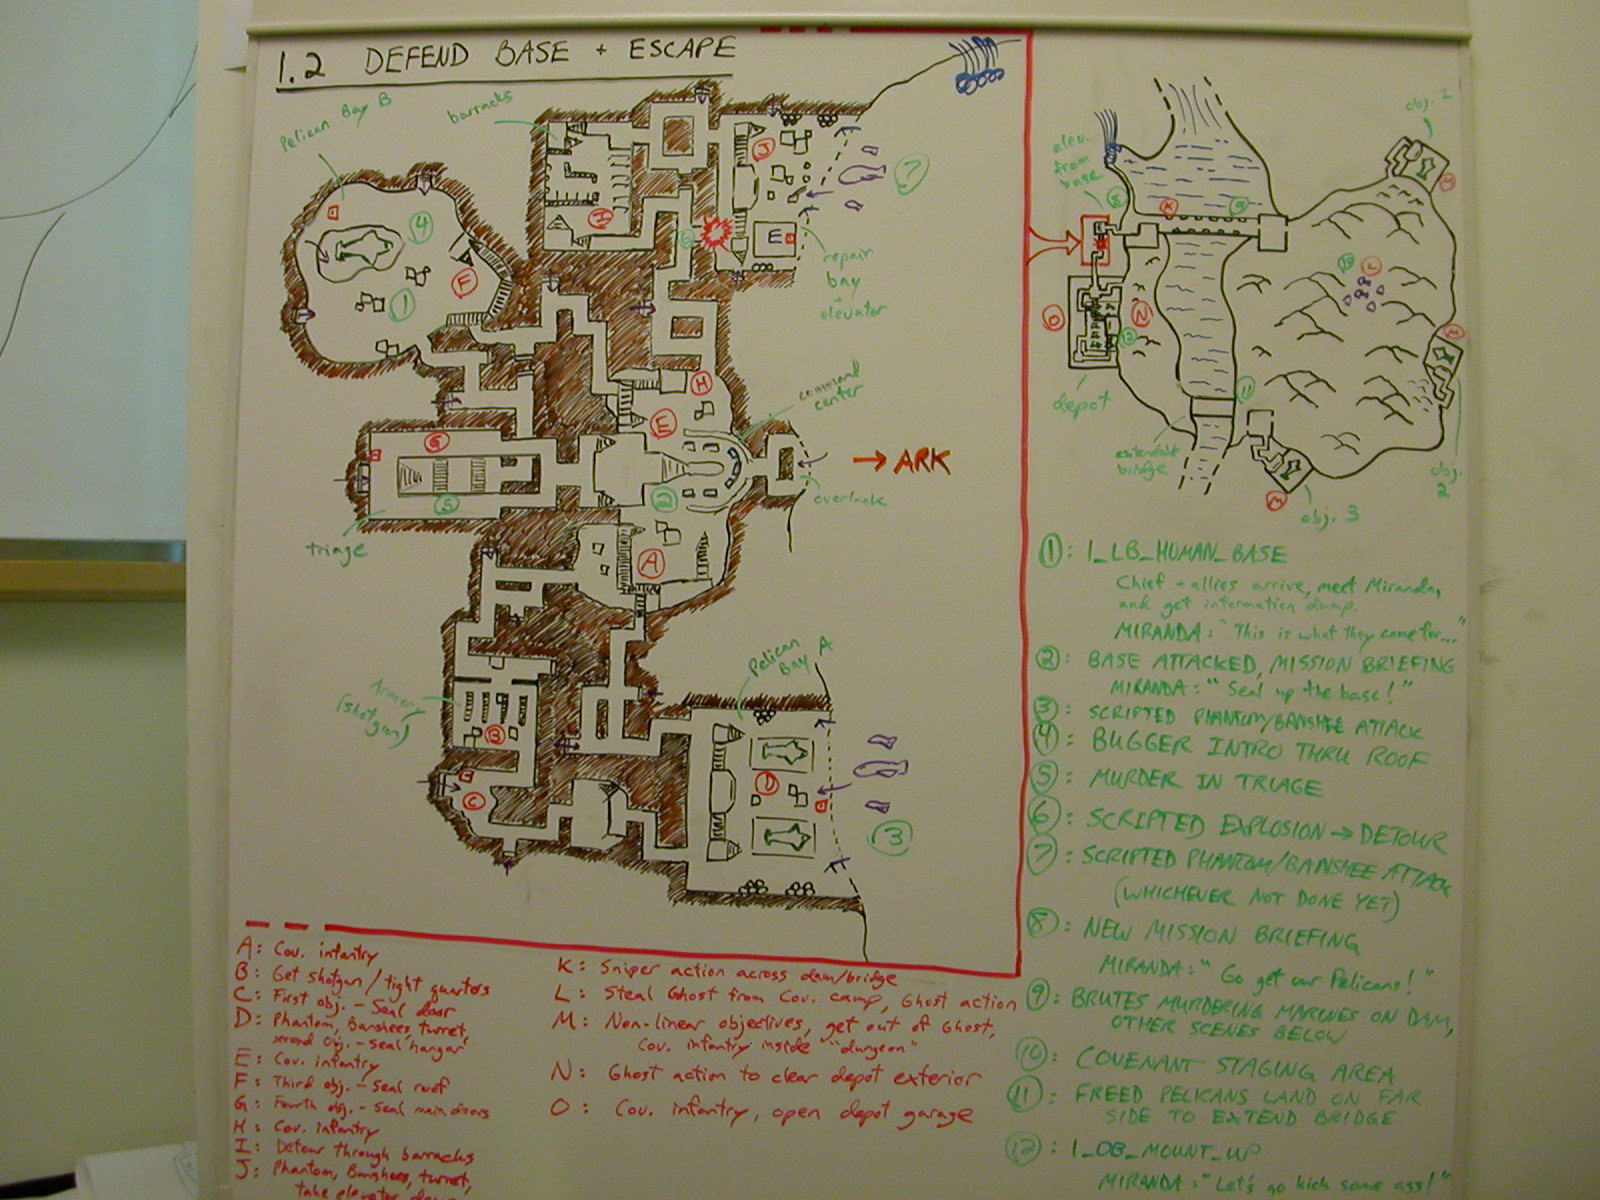 1.2 DEFEND BASE + ESCAPE
Pelican Bay B
barracks
4
1
F
I
J
6
E
7
repair
bay
elevator
H
E
command
center
G
5
2
→ ARK
overlook
triage
A
Pelican
Bay A
Armory
(shotgun)
B
C
D
3
obj. 2
elev.
from
base
8
K
9
M
10
L
O
N
12
M
depot
11
extendable
bridge
obj.
2
M
obj. 3
1: 1_LB_HUMAN_BASE
Chief + allies arrive, meet Miranda,
and get information dump.
MIRANDA: "This is what they came for..."
2: BASE ATTACKED, MISSION BRIEFING
MIRANDA: "Seal up the base!"
3: SCRIPTED PHANTOM/BANSHEE ATTACK
4: BUGGER INTRO THRU ROOF
5: MURDER IN TRIAGE
6: SCRIPTED EXPLOSION → DETOUR
7: SCRIPTED PHANTOM/BANSHEE ATTACK
(WHICHEVER NOT DONE YET)
8: NEW MISSION BRIEFING
MIRANDA: "Go get our Pelicans!"
9: BRUTES MURDERING MARINES ON DAM,
OTHER SCENES BELOW
10: COVENANT STAGING AREA
11: FREED PELICANS LAND ON FAR
SIDE TO EXTEND BRIDGE
12: 1_OB_MOUNT_UP
MIRANDA: "Let's go kick some ass!"
A: Cov. infantry
B: Get shotgun / tight quarters
C: First obj. - Seal door
D: Phantom, Banshees, turret,
second obj. - seal hangar
E: Cov. infantry
F: Third obj. - Seal roof
G: Fourth obj. - Seal main doors
H: Cov. infantry
I: Detour through barracks
J: Phantom, Banshees, turret,
take elevator down
K: Sniper action across dam/bridge
L: Steal Ghost from Cov. camp, Ghost action
M: Non-linear objectives, get out of Ghost,
Cov. infantry inside "dungeon"
N: Ghost action to clear depot exterior
O: Cov. infantry, open depot garage